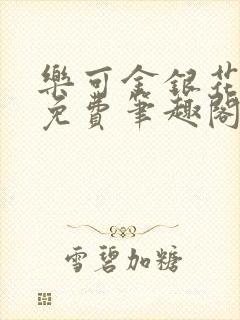 樂可金銀花
免費筆趣閣
雪碧加糖